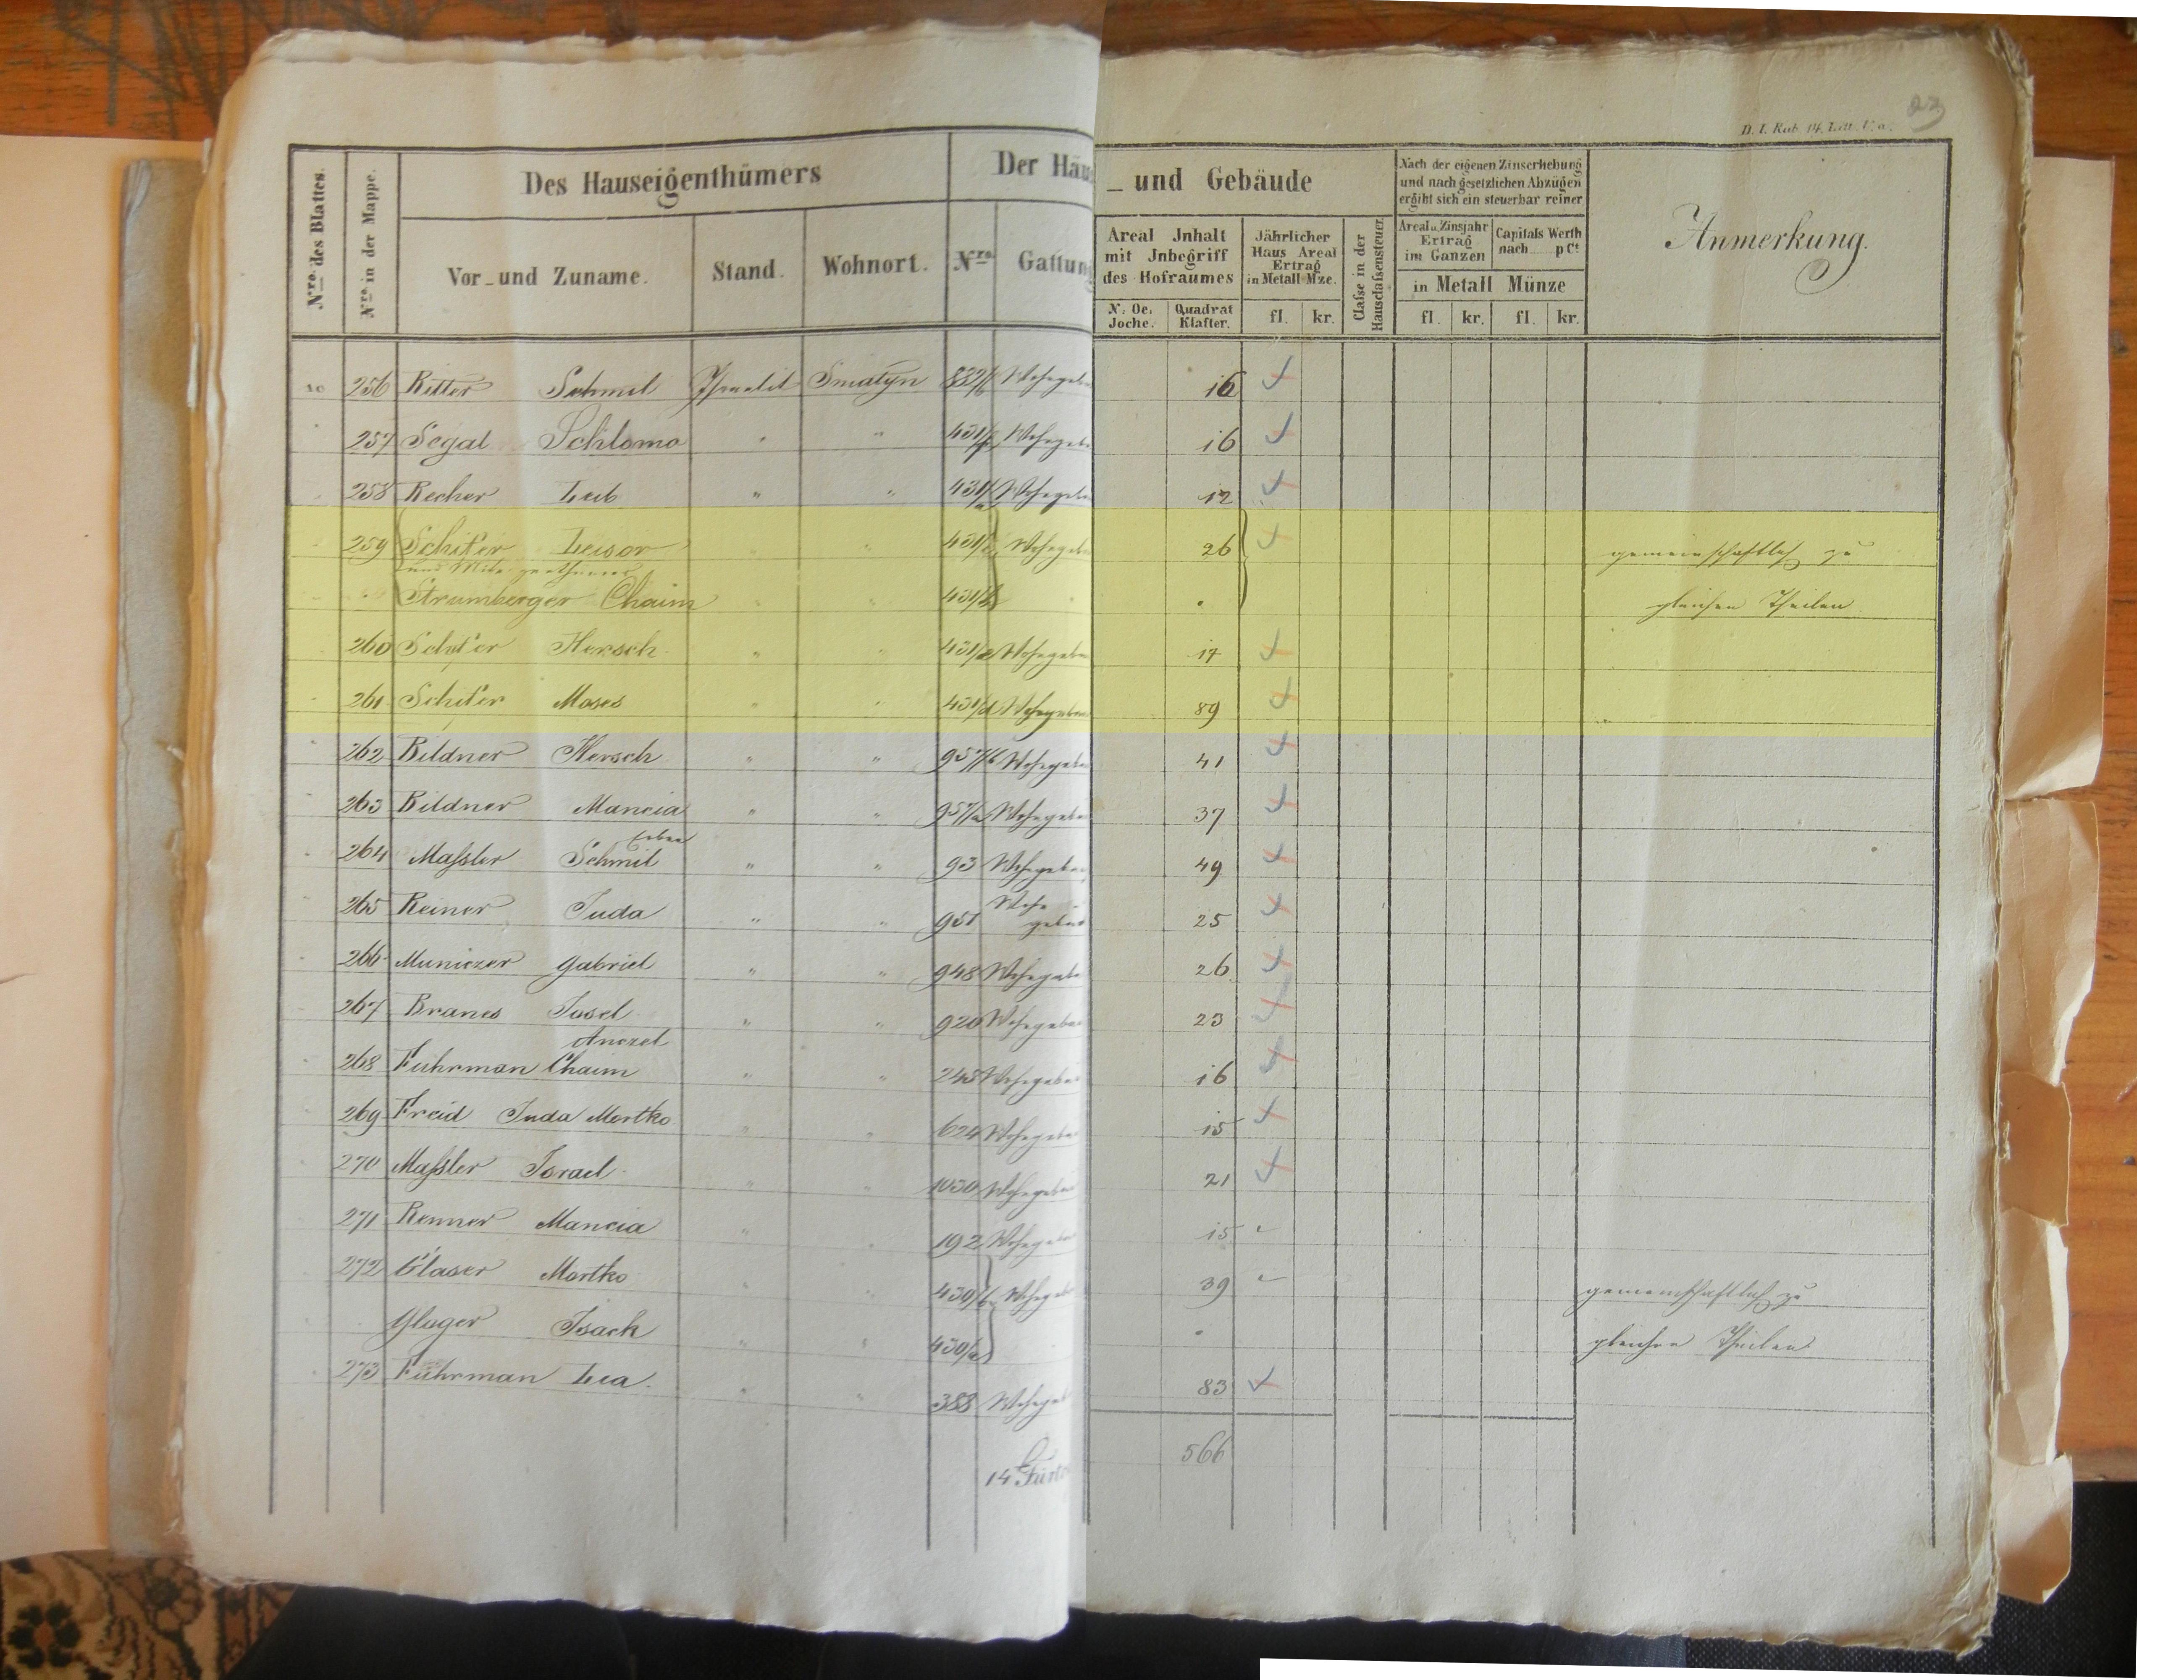 23
D. I. Rub. 14. Litt. U. a.
Nro. des Blattes.
Nro. in der Mappe.
Des Hauseigenthümers
Vor_und Zuname.
Stand.
Wohnort.
Der Häu
_ und Gebäude
Nro.
Gattung
Areal Jnhalt
mit Jnbegriff
des Hofraumes
N. Oe. Joche.
Quadrat Klafter.
Jährlicher
Haus Areal
Ertrag
in Metall Mze.
fl. kr.
Classe in der Hausclassensteuer
Nach der eigenen Zinserhebung
und nach gesetzlichen Abzügen
ergibt sich ein steuerbar reiner
Areal u. Zinsjahr
Ertrag
im Ganzen
Capitals Werth
nach pCt
in Metall Münze
fl. kr. fl. kr.
Anmerkung.
256 Ritter Schmil Israelit Sniatyn Wohngeb 16
257 Segal Schlomo " " 431/ Wohngeb 16
258 Recher Leib " " 431/a Wohngeb 12
259 Schifer Leisor " " 431/ Wohngeb 26 gemeinschaftlich zu
und Miteigenthümer
Strumberger Chaim " " 431/b " gleichen Theilen
260 Schifer Hersch " " 431/e Wohngeb 17
261 Schifer Moses " " 431/d Wohngeb 89
262 Bildner Hersch " " 957/b Wohngeb 41
263 Bildner Mancia " " 957/a Wohngeb 37
Erben
264 Maſsler Schmil " " 93 Wohngeb 49
265 Reiner Juda " " 951 Wohn
geb 25
266 Municzer Gabriel " " 948 Wohngeb 26
267 Branes Josel " " 920 Wohngeb 23
Anczel
268 Fuhrman Chaim " " 248 Wohngeb 16
269 Freid Juda Mortko " " 624 Wohngeb 15
270 Maſsler Israel " " 1030 Wohngeb 21
271 Renner Mancia " " 192 Wohngeb 15
272 Glaser Mortko " " 430/b Wohngeb 39 gemeinschaftlich zu
Gluger Isack " " 430/a " gleichen Theilen
273 Fuhrman Lea " " 388 Wohngeb 83
14 566